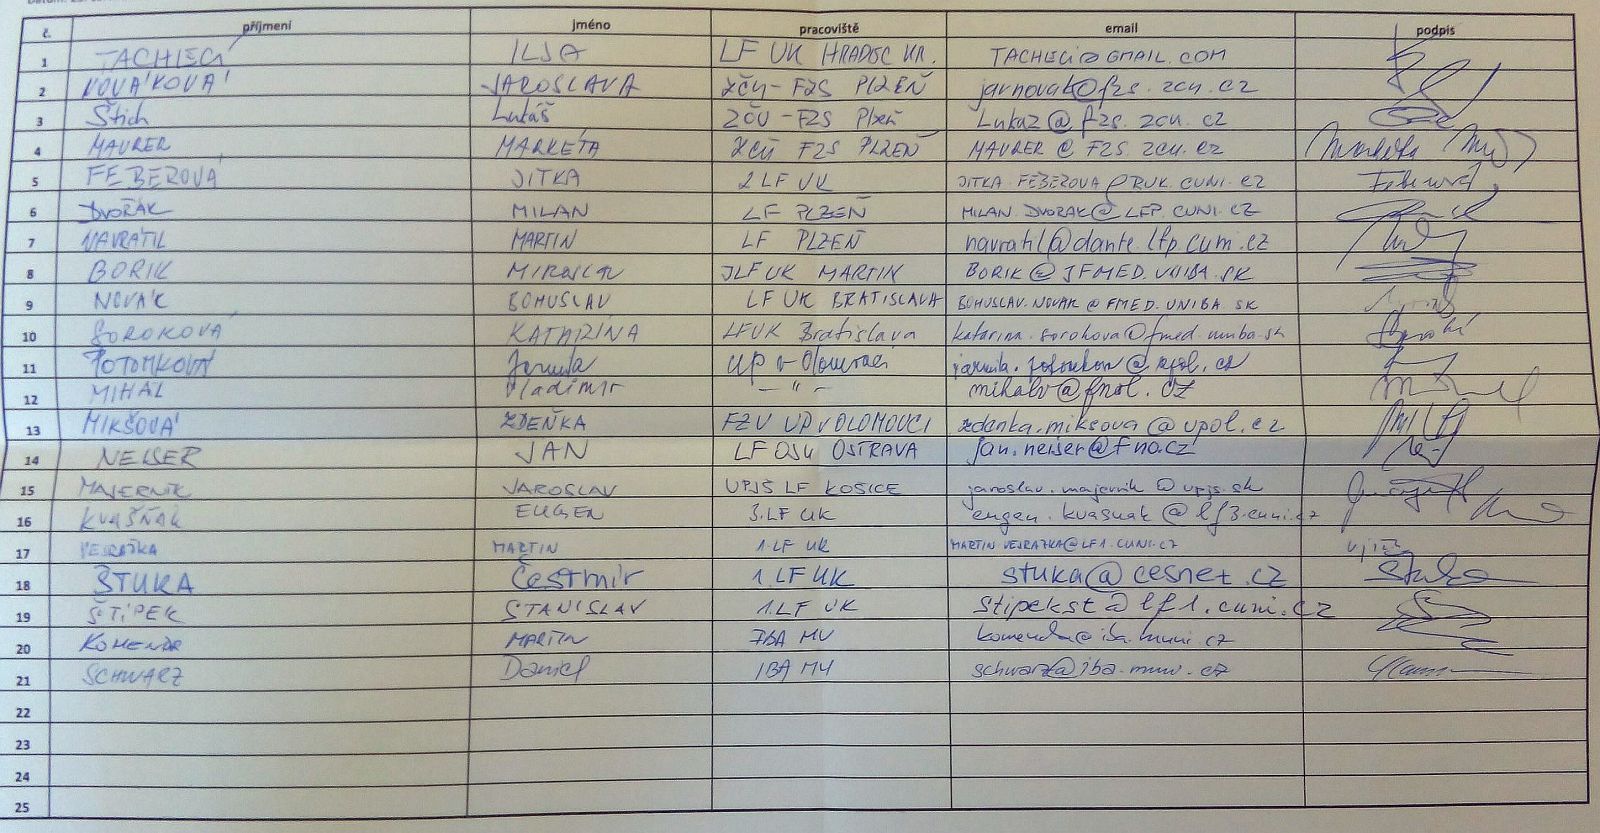 č. příjmení jméno pracoviště email podpis
1 TACHECÍ ILJA LF UK HRADEC KR. TACHECI@GMAIL.COM
2 NOVÁKOVÁ JAROSLAVA ZČU-FZS PLZEŇ jarnovak@fzs.zcu.cz
3 Štich Lukáš ZČU-FZS Plzeň Lukaz@fzs.zcu.cz
4 MAURER MARKÉTA ZČU FZS PLZEŇ MAURER@FZS.ZCU.CZ
5 FEBEROVÁ JITKA 2 LF UK JITKA.FEBEROVA@RUK.CUNI.CZ
6 DVOŘÁK MILAN LF PLZEŇ MILAN.DVORAK@LFP.CUNI.CZ
7 NAVRÁTIL MARTIN LF PLZEŇ navratil@dante.lfp.cuni.cz
8 BORIK JLF UK MARTIN BORIK@JFMED.UNIBA.SK
9 NOVÁK BOHUSLAV LF UK BRATISLAVA BOHUSLAV.NOVAK@FMED.UNIBA.SK
10 SOROKOVÁ KATARÍNA LFUK Bratislava katarina.sorokova@fmed.uniba.sk
11 POTOMKOVÁ Jarmila UP v Olomouci
12 MIHÁL Vladimír - " - mihalv@fnol.cz
13 MIKŠOVÁ ZDEŇKA FZV UP V OLOMOUCI zdenka.miksova@upol.cz
14 NEISER JAN LF OSU OSTRAVA jan.neiser@fno.cz
15 MAJERNÍK JAROSLAV UPJŠ LF KOŠICE jaroslav.majernik@upjs.sk
16 KVAŠŇÁK EUGEN 3.LF UK eugen.kvasnak@lf3.cuni.cz
17 VEJRAŽKA MARTIN 1.LF UK MARTIN.VEJRAZKA@LF1.CUNI.CZ
18 ŠTUKA Čestmír 1.LF UK stuka@cesnet.cz Stuka
19 ŠTÍPEK STANISLAV 1.LF UK stipekst@lf1.cuni.cz
20 KOMENDA MARTIN IBA MU komenda@iba.muni.cz
21 SCHWARZ Daniel IBA MU schwarz@iba.muni.cz
22
23
24
25